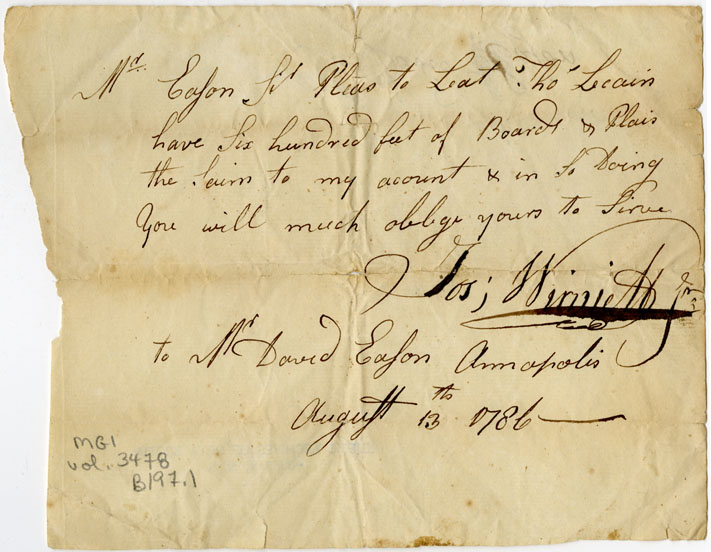 Mr. Eason Sr Pleas to Leat Tho's Lecain
have Six hundred feet of Boards & Plais
the saim to my acount & in So Doing
You will much oblege yours to Sirve
Jos; Winniett Jnr
to Mr David Eason Annapolis
August 13th 1786
MG1
vol. 3478
B197.1